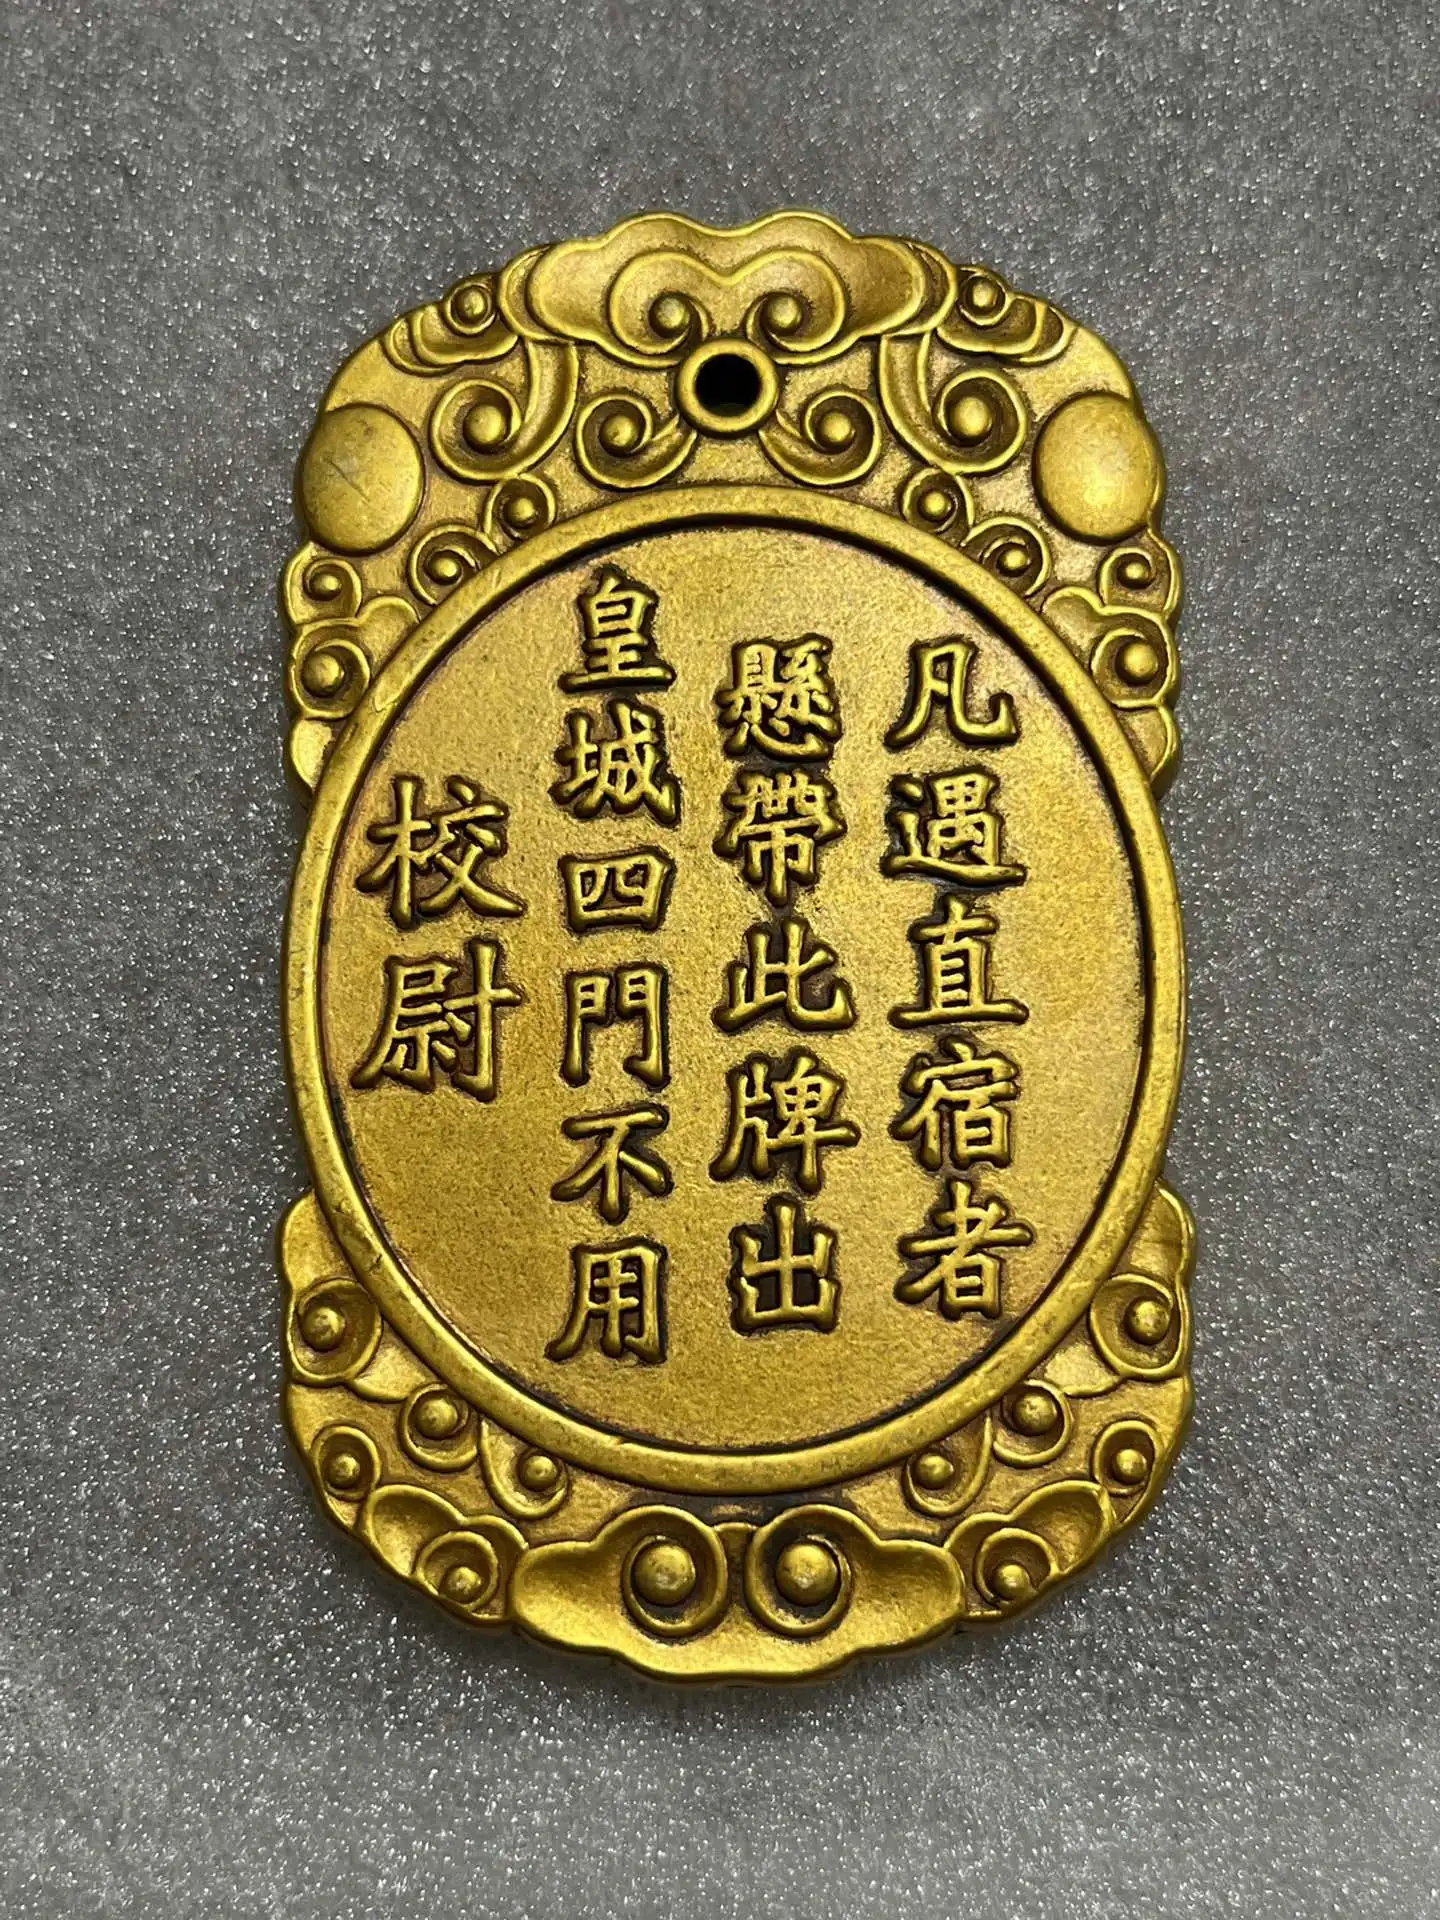 凡遇直宿者
懸帶此牌出
皇城四門不用
校尉